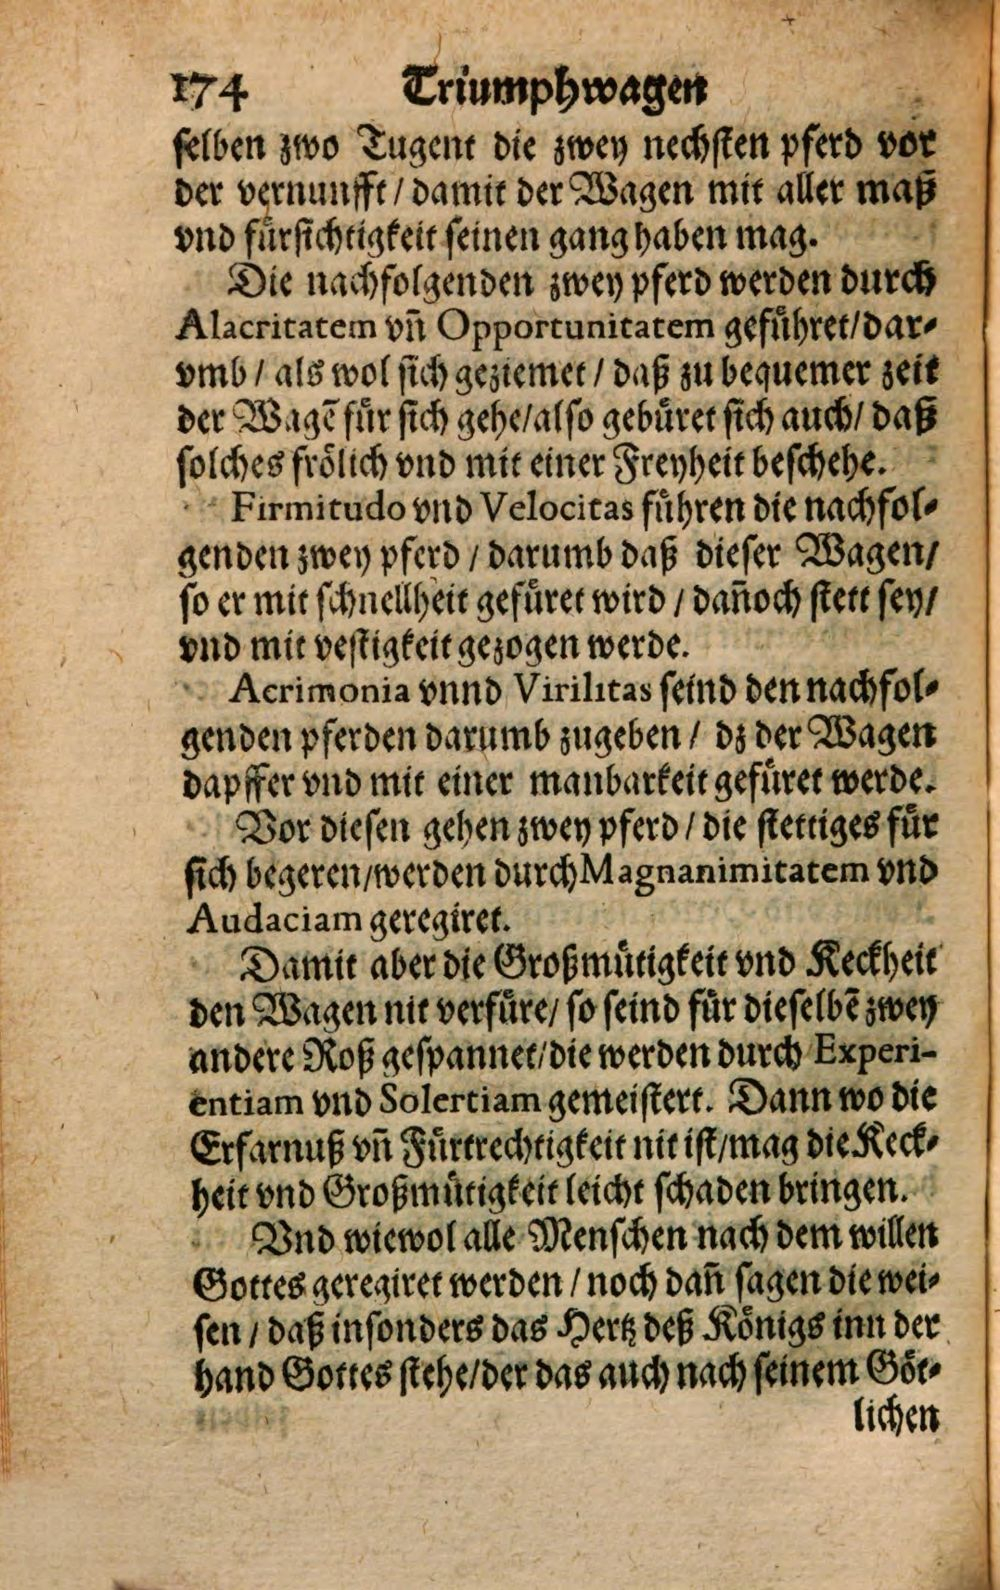 174 Triumphwagen
selben zwo Tugent die zwey nechsten pferd vor
der vernunfft / damit der Wagen mit aller maß
vnd fuͤrsichtigkeit seinen gang haben mag.
Die nachfolgenden zwey pferd werden durch
Alacritatem vñ Opportunitatem gefuͤhret/dar⸗
vmb / als wol sich geziemet / daß zu bequemer zeit
der Wagẽ fuͤr sich gehe/also gebuͤret sich auch/ daß
solches froͤlich vnd mit einer Freyheit beschehe.
Firmitudo vnd Velocitas fuͤhren die nachfol⸗
genden zwey pferd / darumb daß dieser Wagen/
so er mit schnellheit gefuͤret wird / dañoch stett sey/
vnd mit vestigkeit gezogen werde.
Acrimonia vnnd Virilitas seind den nachfol⸗
genden pferden darumb zugeben / dz der Wagen
dapffer vnd mit einer manbarkeit gefuͤret werde.
Vor diesen gehen zwey pferd / die stettiges fuͤr
sich begeren/werden durch Magnanimitatem vnd
Audaciam geregiret.
Damit aber die Großmuͤtigkeit vnd Keckheit
den Wagen nit verfuͤre/ so seind fuͤr dieselbẽ zwey
andere Roß gespannet/die werden durch Experi-
entiam vnd Solertiam gemeistert. Dann wo die
Erfarnuß vñ Fuͤrtrechtigkeit nit ist/mag die Keck⸗
heit vnd Großmuͤtigkeit leicht schaden bringen.
Vnd wiewol alle Menschen nach dem willen
Gottes geregiret werden / noch dañ sagen die wei⸗
sen / daß insonders das Hertz deß Koͤnigs inn der
hand Gottes stehe/der das auch nach seinem Goͤt⸗
lichen